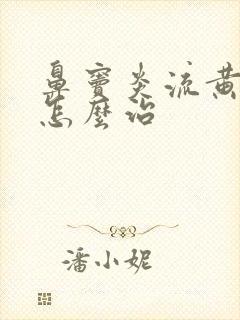 鼻窦炎流黄
怎麼治
潘小妮